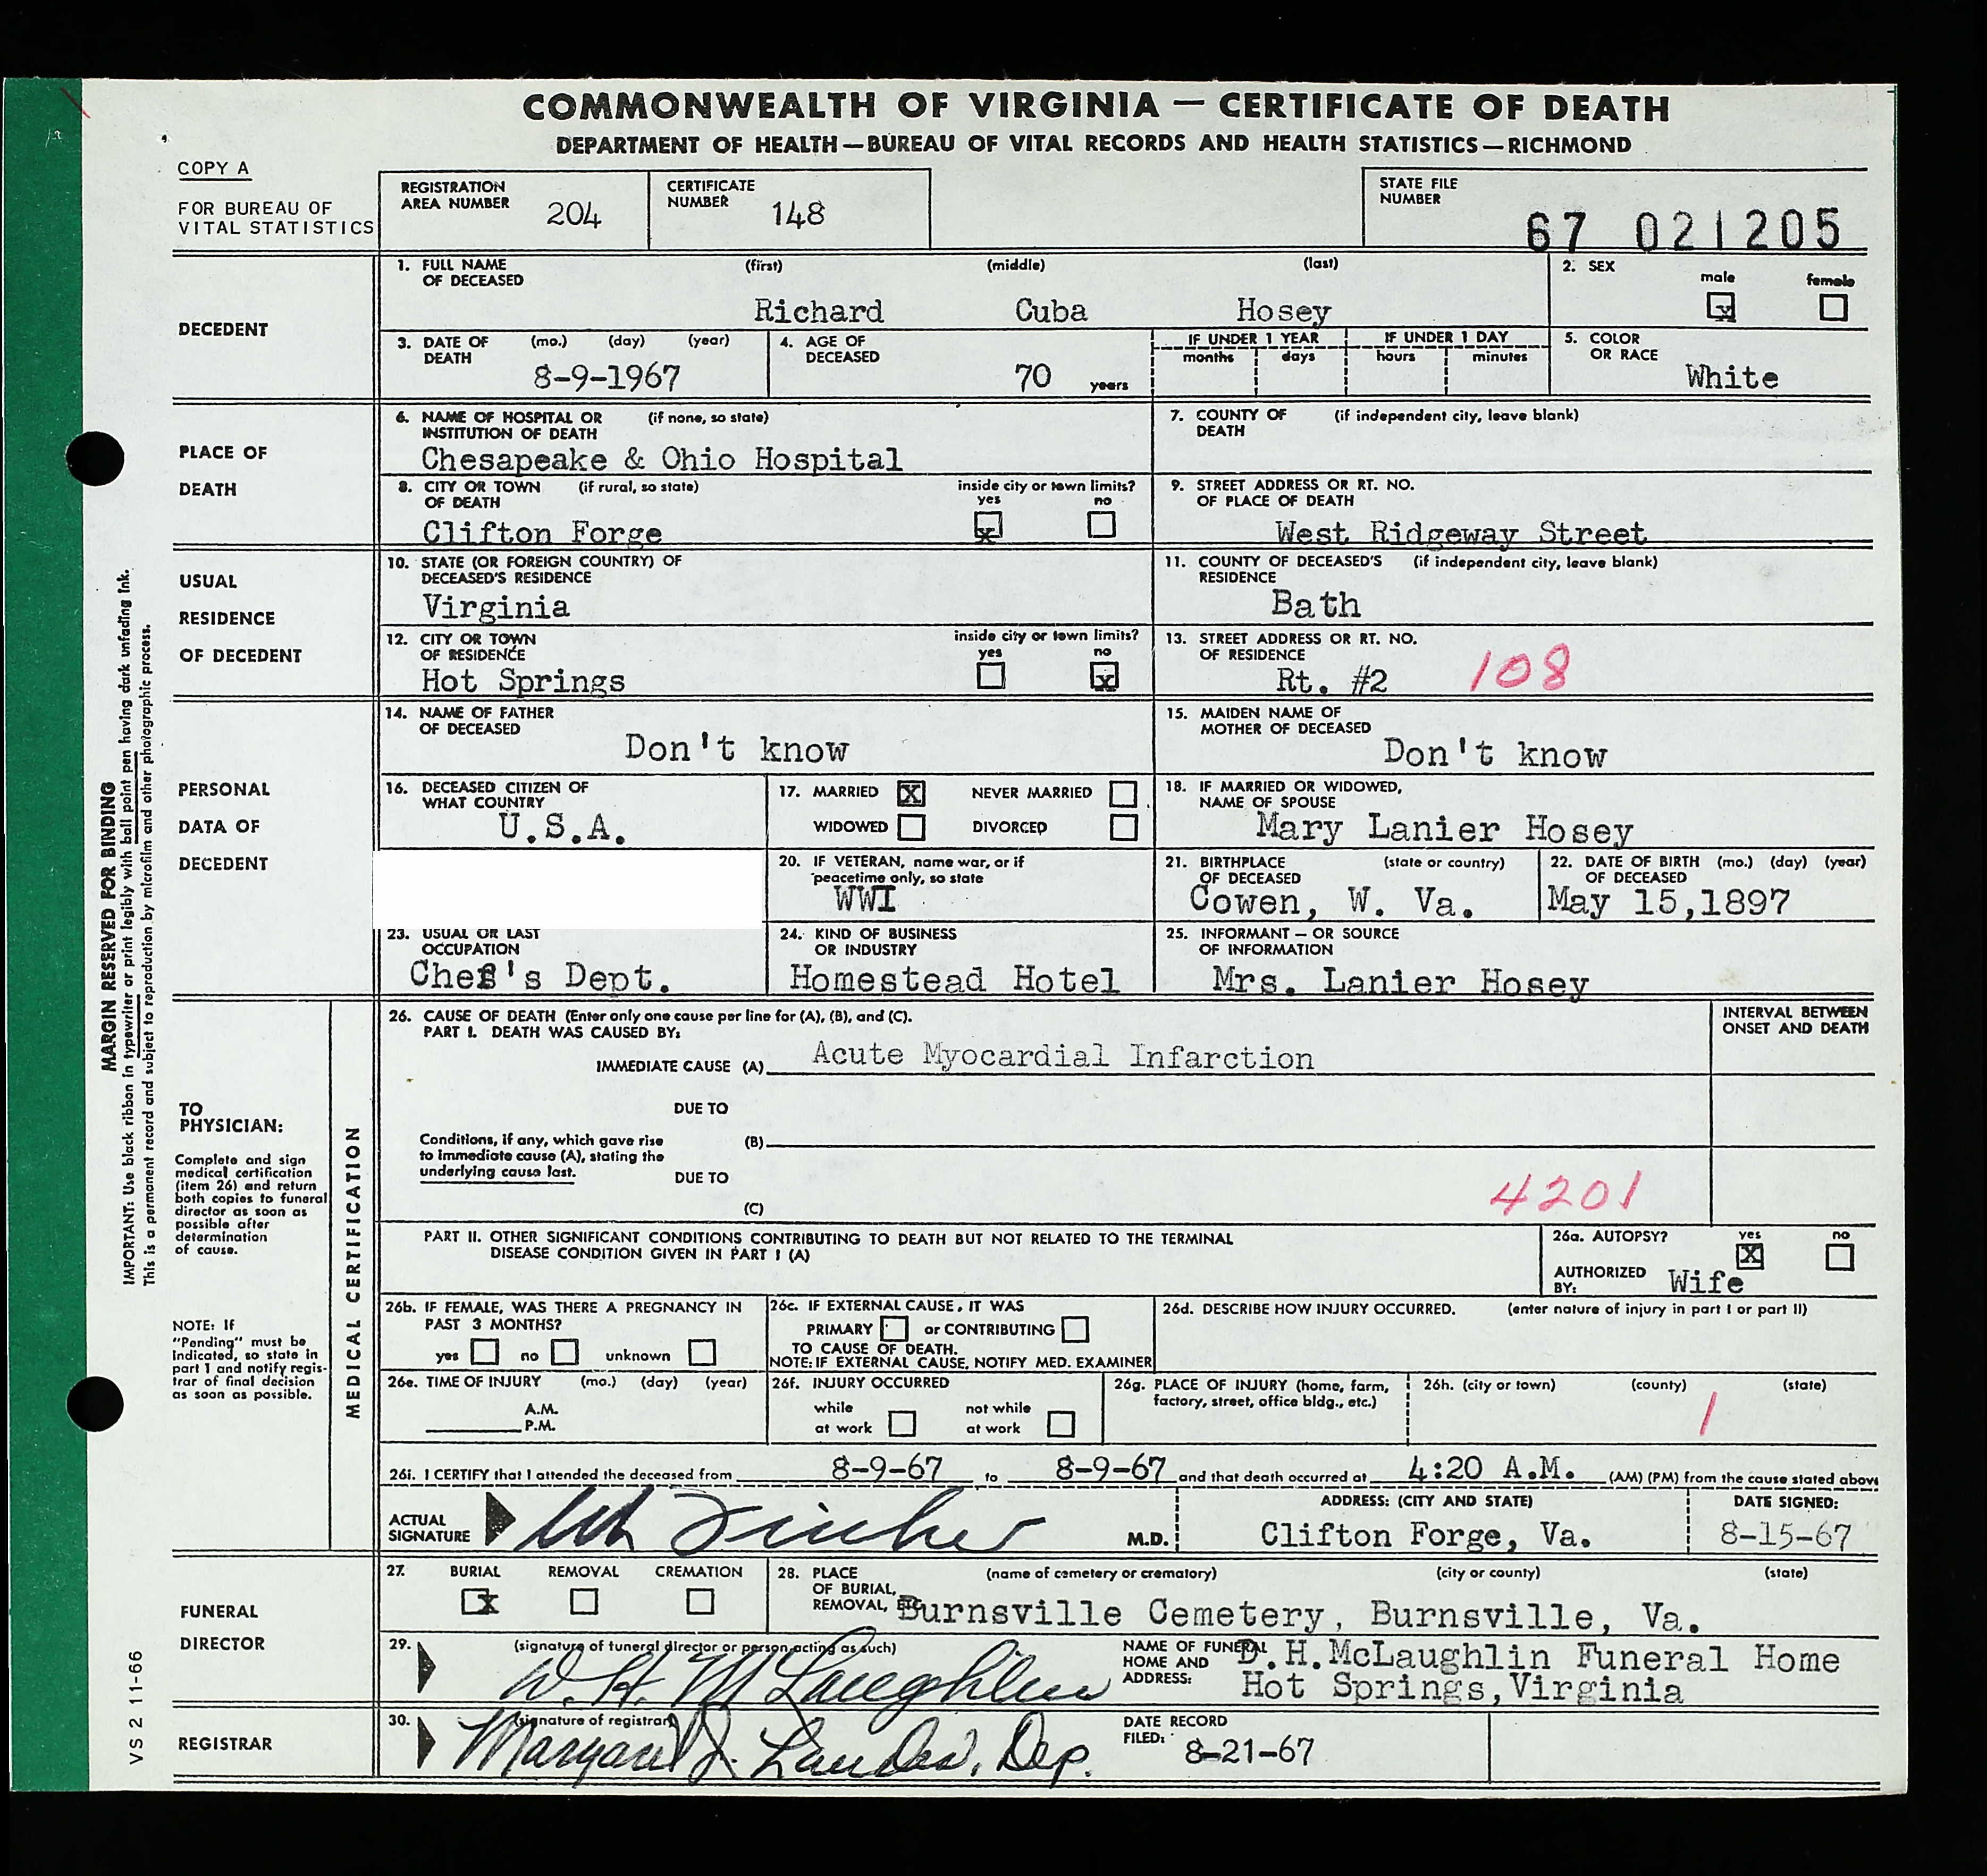 COMMONWEALTH OF VIRGINIA — CERTIFICATE OF DEATH
DEPARTMENT OF HEALTH—BUREAU OF VITAL RECORDS AND HEALTH STATISTICS—RICHMOND
COPY A
FOR BUREAU OF
VITAL STATISTICS
REGISTRATION
AREA NUMBER 204
CERTIFICATE
NUMBER 148
STATE FILE
NUMBER
67 021205
DECEDENT
1. FULL NAME (first) (middle) (last)
OF DECEASED
Richard Cuba Hosey
2. SEX
male female
x
3. DATE OF (mo.) (day) (year)
DEATH
8-9-1967
4. AGE OF
DECEASED
70 years
IF UNDER 1 YEAR IF UNDER 1 DAY
months days hours minutes
5. COLOR
OR RACE
White
PLACE OF
DEATH
6. NAME OF HOSPITAL OR (if none, so state)
INSTITUTION OF DEATH
Chesapeake & Ohio Hospital
7. COUNTY OF (if independent city, leave blank)
DEATH
8. CITY OR TOWN (if rural, so state) inside city or town limits?
OF DEATH yes no
Clifton Forge x
9. STREET ADDRESS OR RT. NO.
OF PLACE OF DEATH
West Ridgeway Street
USUAL
RESIDENCE
OF DECEDENT
10. STATE (OR FOREIGN COUNTRY) OF
DECEASED'S RESIDENCE
Virginia
11. COUNTY OF DECEASED'S (if independent city, leave blank)
RESIDENCE
Bath
12. CITY OR TOWN inside city or town limits?
OF RESIDENCE yes no
Hot Springs x
13. STREET ADDRESS OR RT. NO.
OF RESIDENCE
Rt. #2 108
PERSONAL
DATA OF
DECEDENT
14. NAME OF FATHER
OF DECEASED
Don't know
15. MAIDEN NAME OF
MOTHER OF DECEASED
Don't know
16. DECEASED CITIZEN OF
WHAT COUNTRY
U.S.A.
17. MARRIED X NEVER MARRIED
WIDOWED DIVORCED
18. IF MARRIED OR WIDOWED,
NAME OF SPOUSE
Mary Lanier Hosey
20. IF VETERAN, name war, or if
peacetime only, so state
WWI
21. BIRTHPLACE (state or country)
OF DECEASED
Cowen, W. Va.
22. DATE OF BIRTH (mo.) (day) (year)
OF DECEASED
May 15,1897
23. USUAL OR LAST
OCCUPATION
Chef's Dept.
24. KIND OF BUSINESS
OR INDUSTRY
Homestead Hotel
25. INFORMANT — OR SOURCE
OF INFORMATION
Mrs. Lanier Hosey
MARGIN RESERVED FOR BINDING
IMPORTANT: Use black ribbon in typewriter or print legibly with ball point pen having dark unfading ink.
This is a permanent record and subject to reproduction by microfilm and other photographic process.
TO
PHYSICIAN:
Complete and sign
medical certification
(item 26) and return
both copies to funeral
director as soon as
possible after
determination
of cause.
NOTE: If
"Pending" must be
indicated, so state in
part 1 and notify regis-
trar of final decision
as soon as possible.
MEDICAL CERTIFICATION
26. CAUSE OF DEATH (Enter only one cause per line for (A), (B), and (C).
PART I. DEATH WAS CAUSED BY:
INTERVAL BETWEEN
ONSET AND DEATH
IMMEDIATE CAUSE (A) Acute Myocardial Infarction
DUE TO
Conditions, if any, which gave rise (B)
to immediate cause (A), stating the
underlying cause last. DUE TO
(C)
4201
PART II. OTHER SIGNIFICANT CONDITIONS CONTRIBUTING TO DEATH BUT NOT RELATED TO THE TERMINAL
DISEASE CONDITION GIVEN IN PART I (A)
26a. AUTOPSY? yes no
X
AUTHORIZED
BY: Wife
26b. IF FEMALE, WAS THERE A PREGNANCY IN
PAST 3 MONTHS?
yes no unknown
26c. IF EXTERNAL CAUSE, IT WAS
PRIMARY or CONTRIBUTING
TO CAUSE OF DEATH.
NOTE: IF EXTERNAL CAUSE, NOTIFY MED. EXAMINER
26d. DESCRIBE HOW INJURY OCCURRED. (enter nature of injury in part I or part II)
26e. TIME OF INJURY (mo.) (day) (year)
A.M.
P.M.
26f. INJURY OCCURRED
while not while
at work at work
26g. PLACE OF INJURY (home, farm,
factory, street, office bldg., etc.)
26h. (city or town) (county) (state)
1
26i. I CERTIFY that I attended the deceased from 8-9-67 to 8-9-67 and that death occurred at 4:20 A.M. (AM) (PM) from the cause stated above
ACTUAL
SIGNATURE M.D.
ADDRESS: (CITY AND STATE)
Clifton Forge, Va.
DATE SIGNED:
8-15-67
FUNERAL
DIRECTOR
27. BURIAL REMOVAL CREMATION
x
28. PLACE (name of cemetery or crematory) (city or county) (state)
OF BURIAL,
REMOVAL, Burnsville Cemetery, Burnsville, Va.
29. (signature of funeral director or person acting as such)
D. H. McLaughlin
NAME OF FUNERAL
HOME AND
ADDRESS:
D.H.McLaughlin Funeral Home
Hot Springs,Virginia
REGISTRAR
30. (signature of registrar)
Dep.
DATE RECORD
FILED: 8-21-67
VS 2 11-66